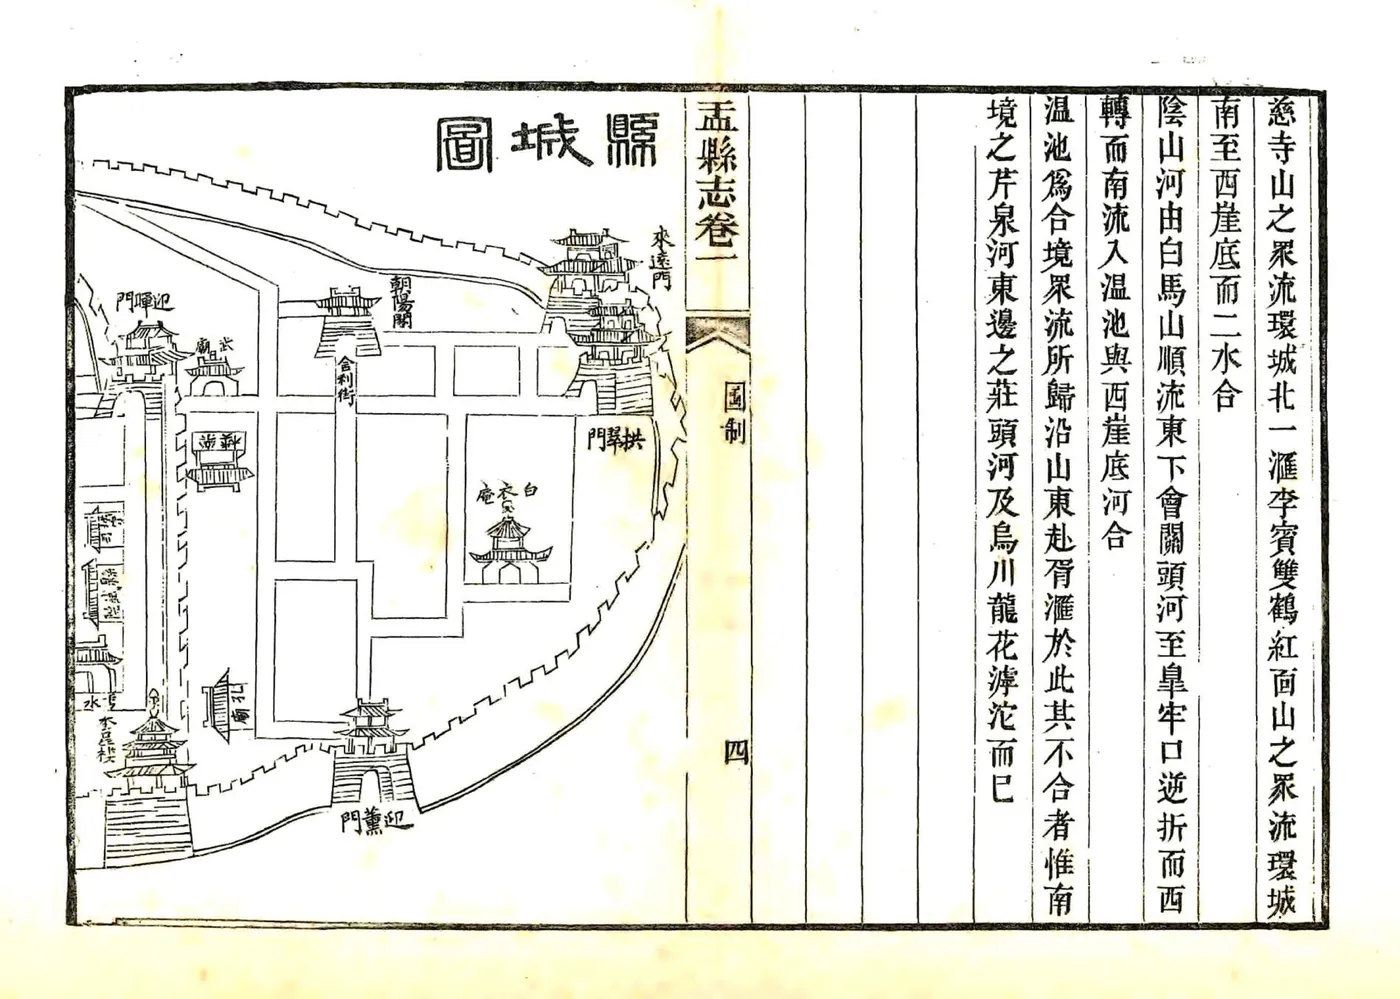 慈寺山之眾流環城北一滙李賓雙鶴紅面山之眾流環城
南至西崖底而二水合
陰山河由白馬山順流東下會關頭河至皐牢口逆折而西
轉而南流入温池與西崖底河合
温池爲合境眾流所歸沿山東赴胥滙於此其不合者惟南
境之芹泉河東邊之莊頭河及烏川龍花滹沱而已
盂縣志卷一
圖制
四
縣城圖
來遠門
朝陽閣
迎暉門
武廟
舍利街
拱翠門
白衣庵
樓
孔廟
水
迎薰門